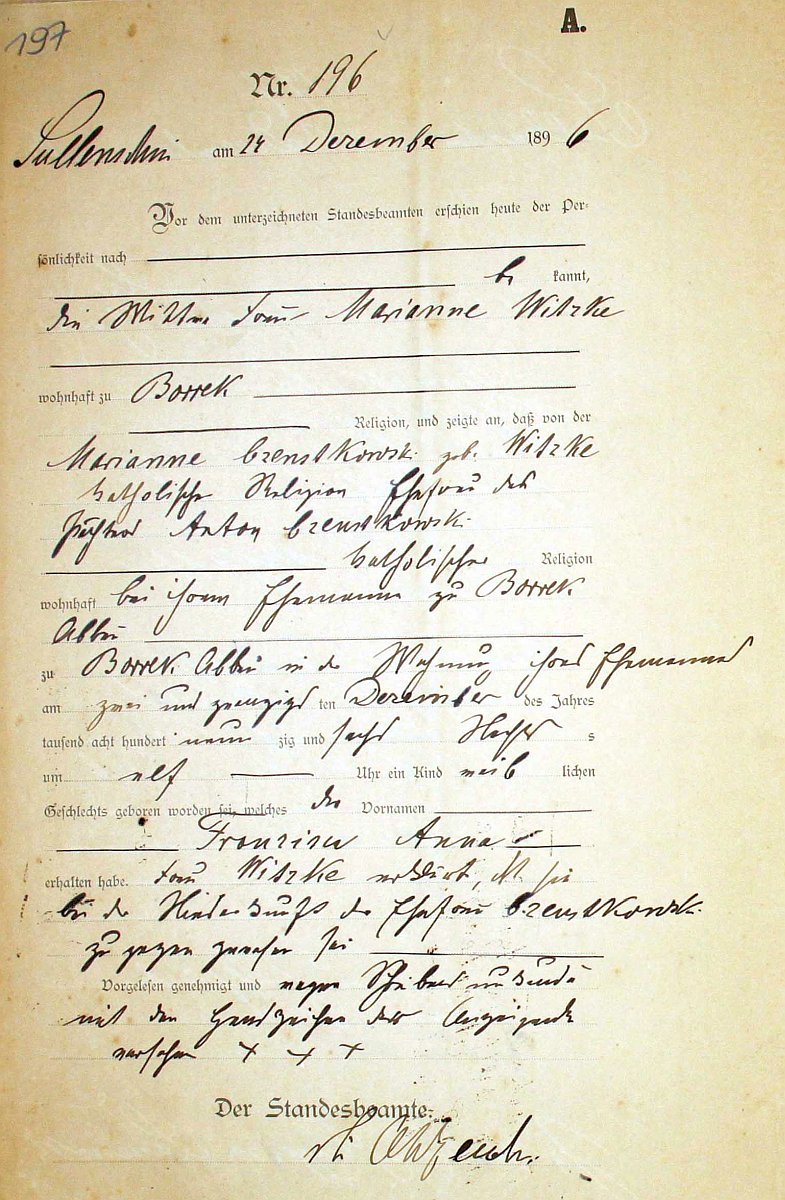 A.
197
Nr. 196
Sullenschin am 24 Dezember 1896
Vor dem unterzeichneten Standesbeamten erschien heute der Per-
sönlichkeit nach
be kannt,
die Wittwe Frau Marianne Witzke
wohnhaft zu Borrek
Religion, und zeigte an, daß von der
Marianne Czenstkowski geb. Witzke
katholischer Religion Ehefrau des
Pächters Anton Czenstkowski
katholischer Religion
wohnhaft bei ihrem Ehemanne zu Borrek
Abbau
zu Borrek Abbau in der Wohnung ihres Ehemannes
am zwei und zwanzigs ten Dezember des Jahres
tausend acht hundert neun zig und sechs s
um elf Uhr ein Kind weib lichen
Geschlechts geboren worden sei, welches die Vornamen
Anna
erhalten habe. Frau Witzke erklärt, daß sie
bei der Niederkunft der Ehefrau Czenstkowski
zugegen gewesen sei
Vorgelesen genehmigt und wegen Schreibensunkunde
mit den Handzeichen der Anzeigende
versehen + + +
Der Standesbeamte.